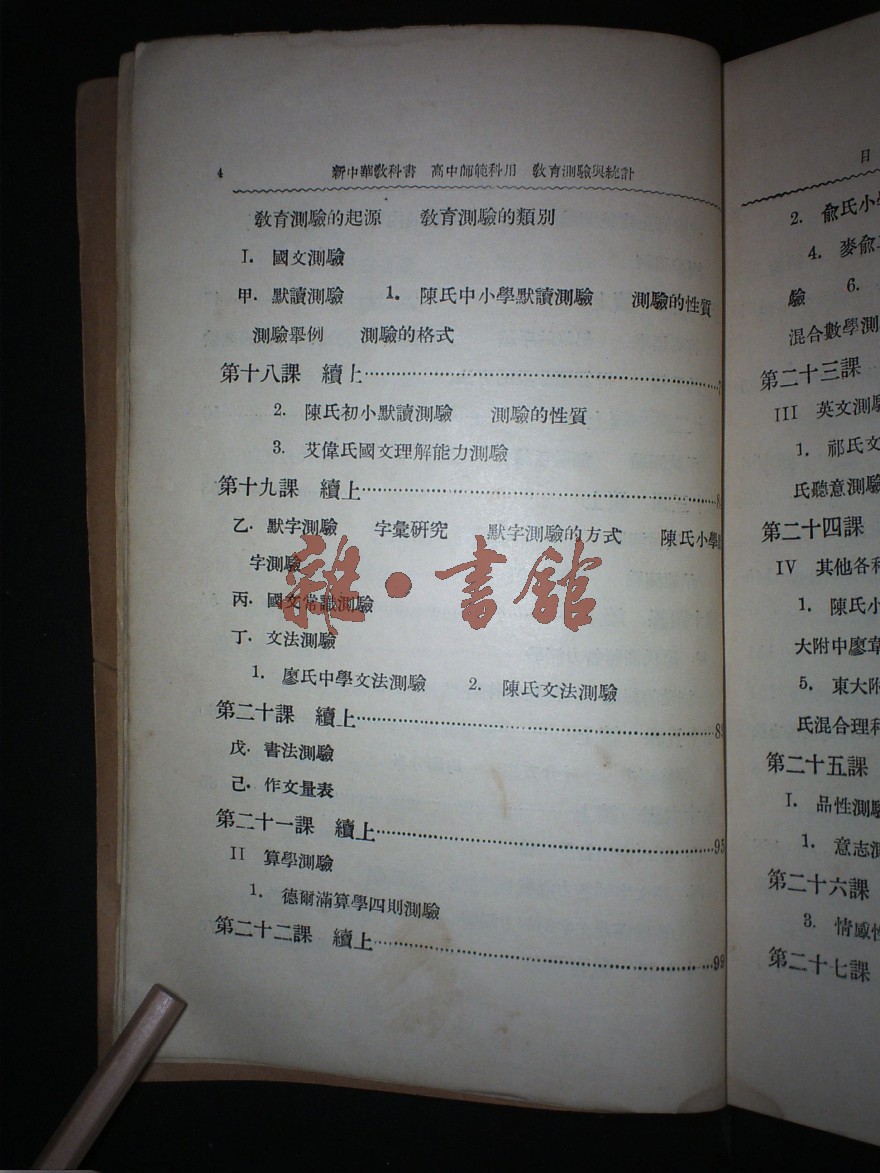 4 新中華教科書 高中師範科用 教育測驗與統計
教育測驗的起源 教育測驗的類別
I. 國文測驗
甲. 默讀測驗 1. 陳氏中小學默讀測驗 測驗的性質
測驗舉例 測驗的格式
第十八課 續上
2. 陳氏初小默讀測驗 測驗的性質
3. 艾偉氏國文理解能力測驗
第十九課 續上 8
乙. 默字測驗 字彙研究 默字測驗的方式 陳氏小學
字測驗
丙. 國文常識測驗
丁. 文法測驗
1. 廖氏中學文法測驗 2. 陳氏文法測驗
第二十課 續上 89
戊. 書法測驗
己. 作文量表
第二十一課 續上 95
II 算學測驗
1. 德爾滿算學四則測驗
第二十二課 續上 99
雜·書館
目
2. 俞氏小學
4. 麥俞
驗 6.
混合數學測
第二十三課
III 英文測驗
1. 祁氏文
氏聽意測驗
第二十四課
IV 其他各科
1. 陳氏小
大附中廖韋
5. 東大附
氏混合理科
第二十五課
I. 品性測驗
1. 意志測
第二十六課
3. 情感性
第二十七課